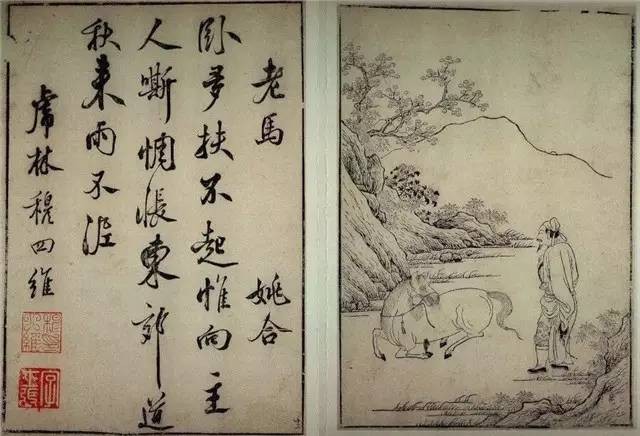 老馬 姚合
卧多扶不起惟向主
人嘶惆悵東郊道
秋来雨不泥
虎林穆四維